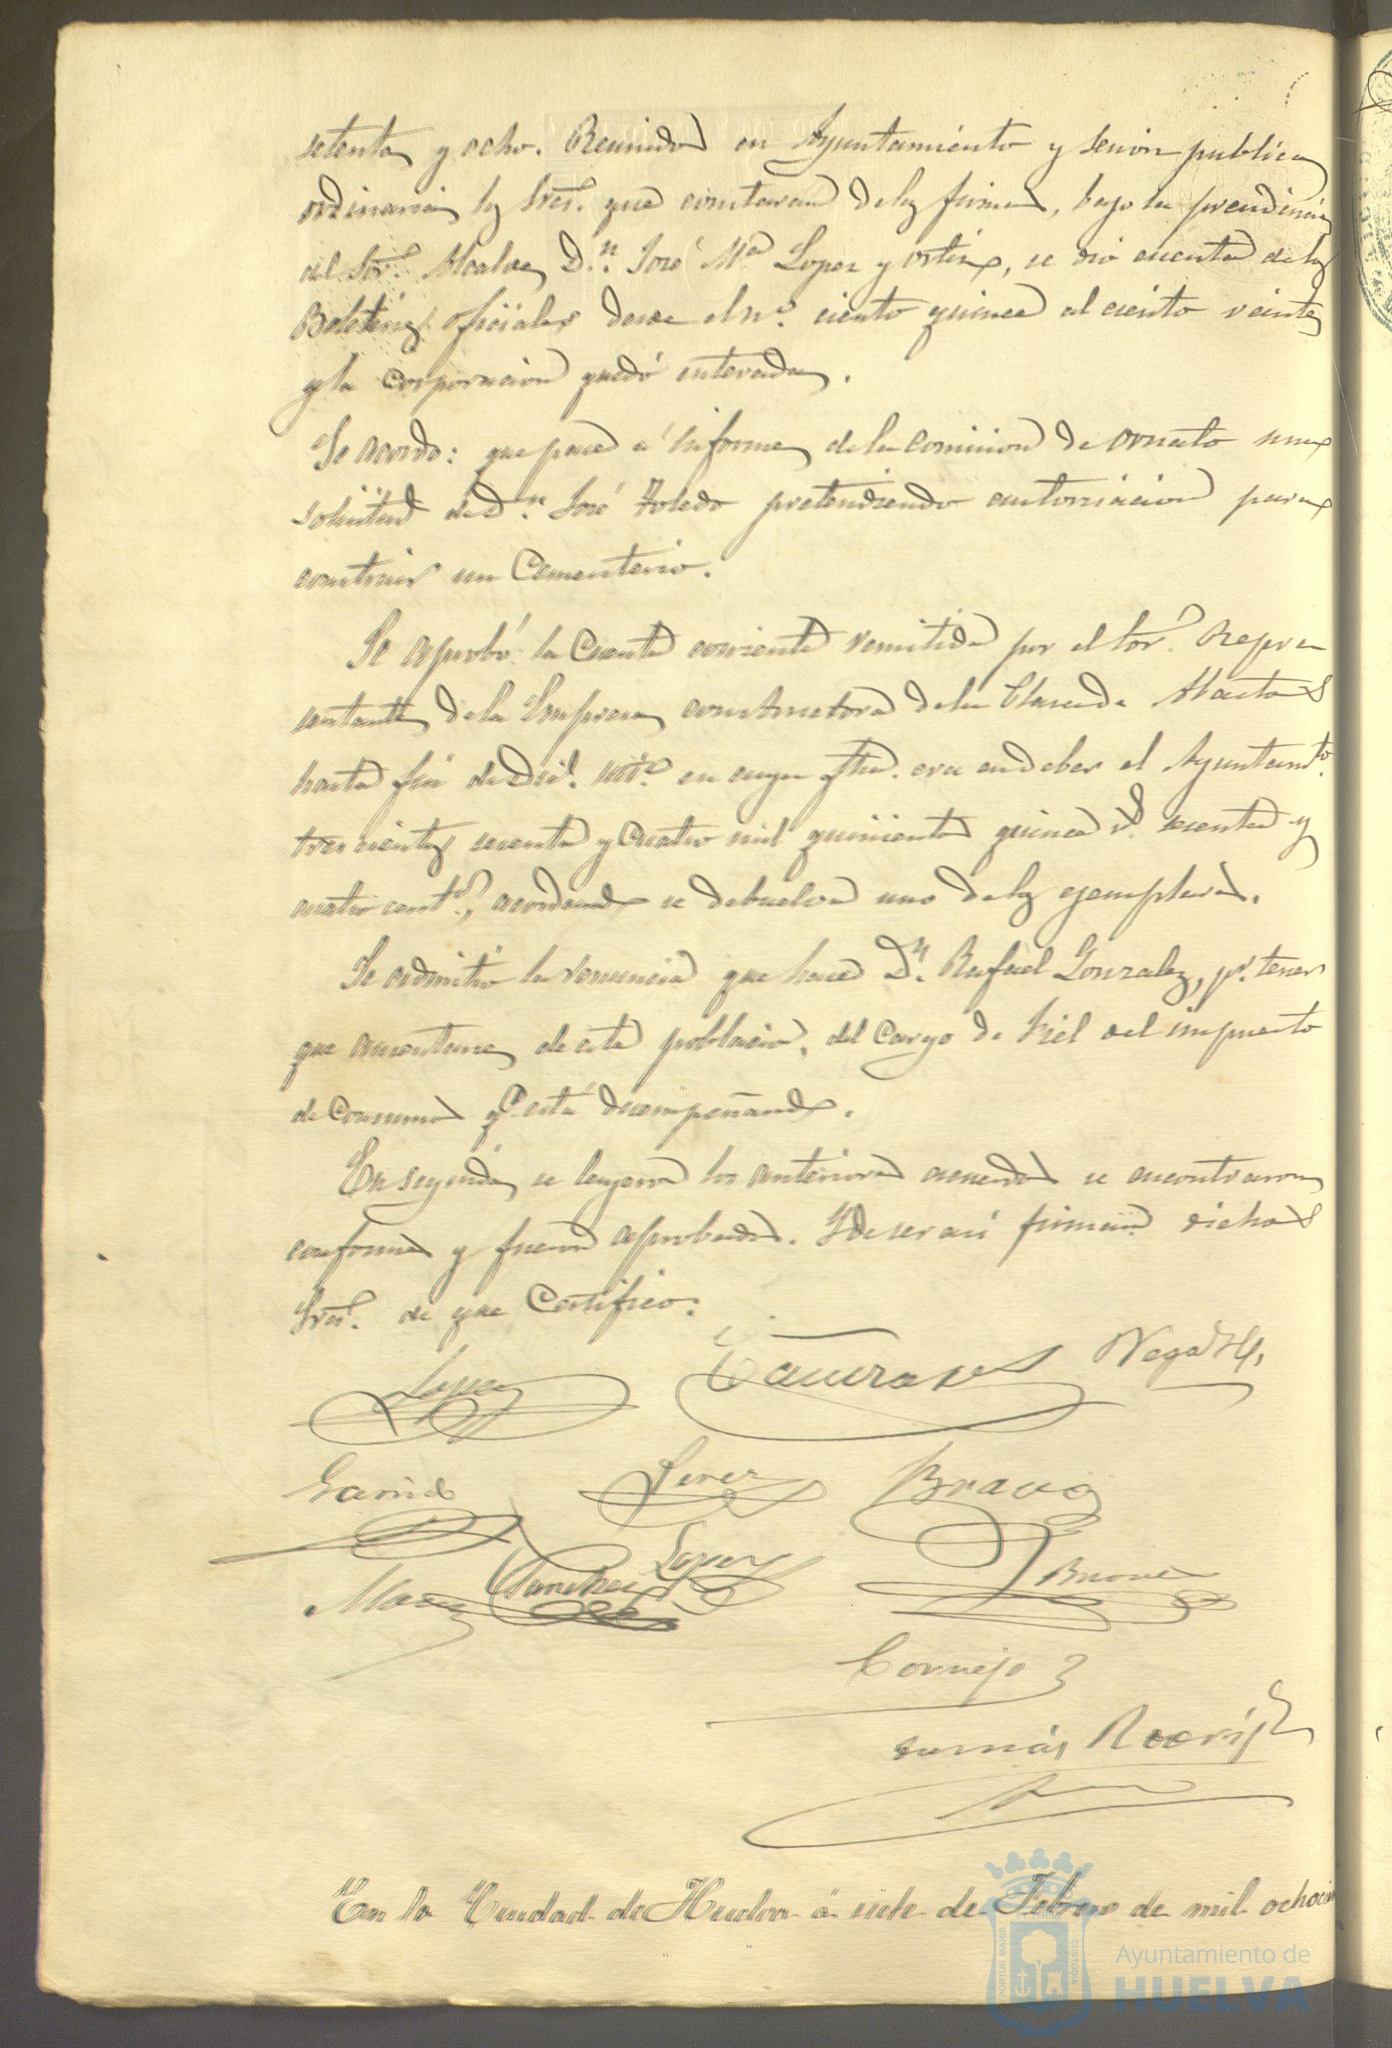 setenta y ocho. Reunidos en Ayuntamiento y sesion publica
ordinaria los Sres. que constaran de las firmas, bajo la presidencia
del Sor. Alcalde D.n José M.a Lopez y Ortiz, se dió cuenta de los
Boletines oficiales desde el n.o ciento quince al ciento veinte
y la corporacion quedó enterada.
Se acordó: que pase á informe de la comision de ornato una
solicitud de D.n José Toledo pretendiendo autorizacion para
construir un Cementerio.
Se aprobó la Cuenta corriente remitida por el Sor. Repre
sentante de la Empresa constructora de la Plaza de Abastos
hasta fin de Dic.e en cuya fha. era en deber el Ayuntamto.
trescientos sesenta y cuatro mil quinientos quince r.s sesenta y
cuatro cent.s, acordando se debuelva uno de los ejemplares.
Se admitió la renuncia que hace D.n Rafael Gonzalez, pr. tener
que ausentarse de esta poblacion, del cargo de Fiel del impuesto
de Consumos q.e está desempeñando.
En seguida se leyeron los anteriores acuerdos se encontraron
conformes y fueron aprobados. Y de ser así firman dichos
Sres. de que Certifico.
Lopez Vega
Garrido Perez Bravo
Sanchez Lopez
Cornejo
Tomás Rodrig
En la Ciudad de Huelva á siete de Febrero de mil ochocien
PORTUS MARIS
CUSTODIA
Ayuntamiento de
HUELVA